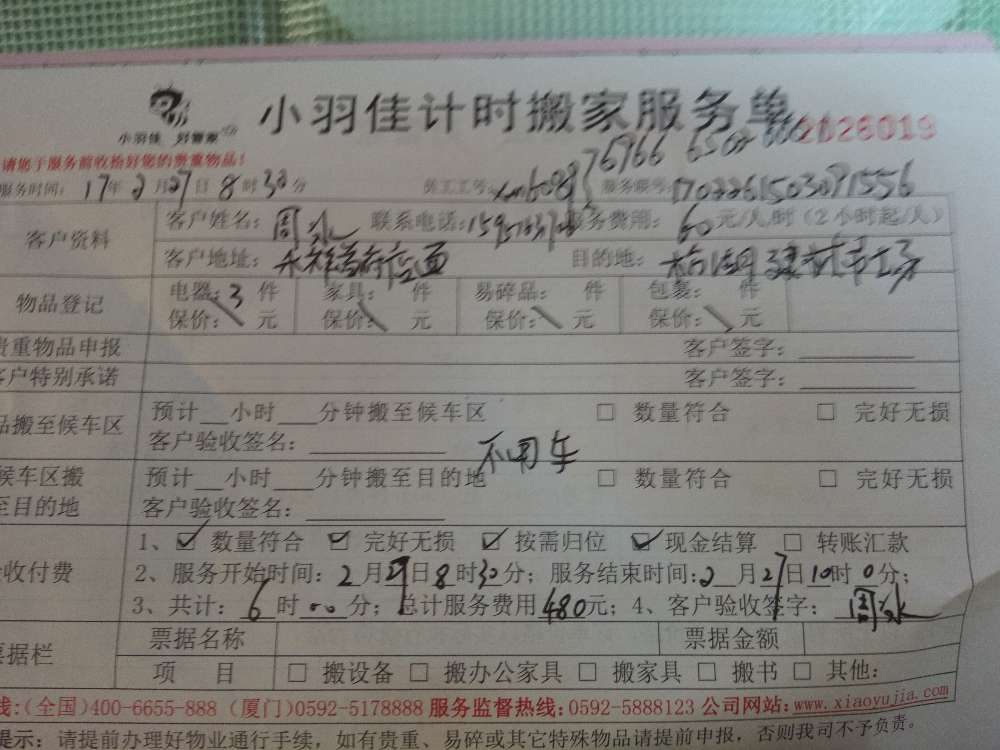 小羽佳 好管家
小羽佳计时搬家服务单
2026019
请您于服务前收拾好您的贵重物品!
76966 6502
服务时间: 17年2月27日8时30分 员工工号: xm6098 服务账号: 1702261503091556
客户资料
客户姓名: 周冰 联系电话: 服务费用: 60元/人/时(2小时起/人)
客户地址: 目的地: 建材市场
物品登记
电器: 3件 家具: 件 易碎品: 件 包裹: 件
保价:\元 保价:\元 保价:\元 保价:\元
贵重物品申报 客户签字:
客户特别承诺 客户签字:
品搬至候车区
预计__小时___分钟搬至候车区 □ 数量符合 □ 完好无损
客户验收签名:
不用车
候车区搬至目的地
预计__小时___分钟搬至目的地 □ 数量符合 □ 完好无损
客户验收签名:
收付费
1、☑ 数量符合 ☑ 完好无损 ☑ 按需归位 ☑ 现金结算 □ 转账汇款
2、服务开始时间: 2月27日8时30分; 服务结束时间: 2月27日10时0分;
3、共计: 6时00分; 总计服务费用480元; 4、客户验收签字: 周冰
票据栏
票据名称 票据金额
项 目 □ 搬设备 □ 搬办公家具 □ 搬家具 □ 搬书 □ 其他:
线:(全国)400-6655-888 (厦门)0592-5178888 服务监督热线:0592-5888123 公司网站:www.xiaoyujia.com
提示: 请提前办理好物业通行手续, 如有贵重、易碎或其它特殊物品请提前申报, 否则我司不予负责。